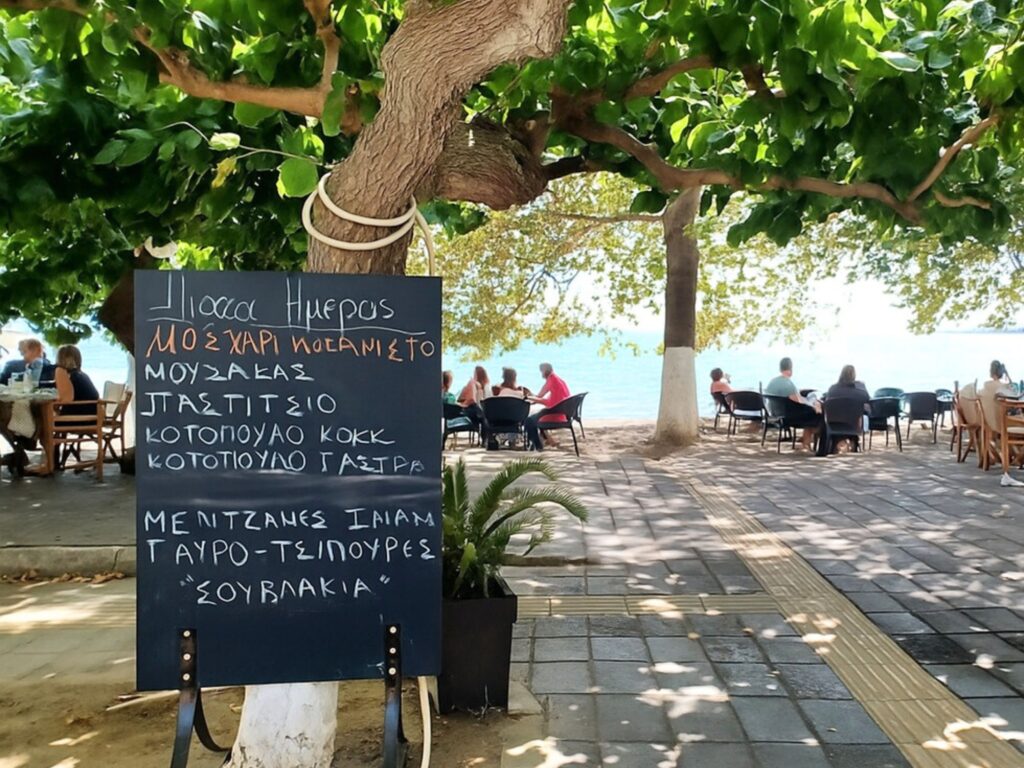 Πιάτα Ημέρας
ΜΟΣΧΑΡΙ ΚΟΚΑΝΙΣΤΟ
ΜΟΥΣΑΚΑΣ
ΠΑΣΤΙΤΣΙΟ
ΚΟΤΟΠΟΥΛΟ ΚΟΚΚ
ΚΟΤΟΠΟΥΛΟ ΓΑΣΤΡΑ
ΜΕΛΙΤΖΑΝΕΣ ΙΜΑΜ
ΓΑΥΡΟ-ΤΣΙΠΟΥΡΕΣ
"ΣΟΥΒΛΑΚΙΑ"